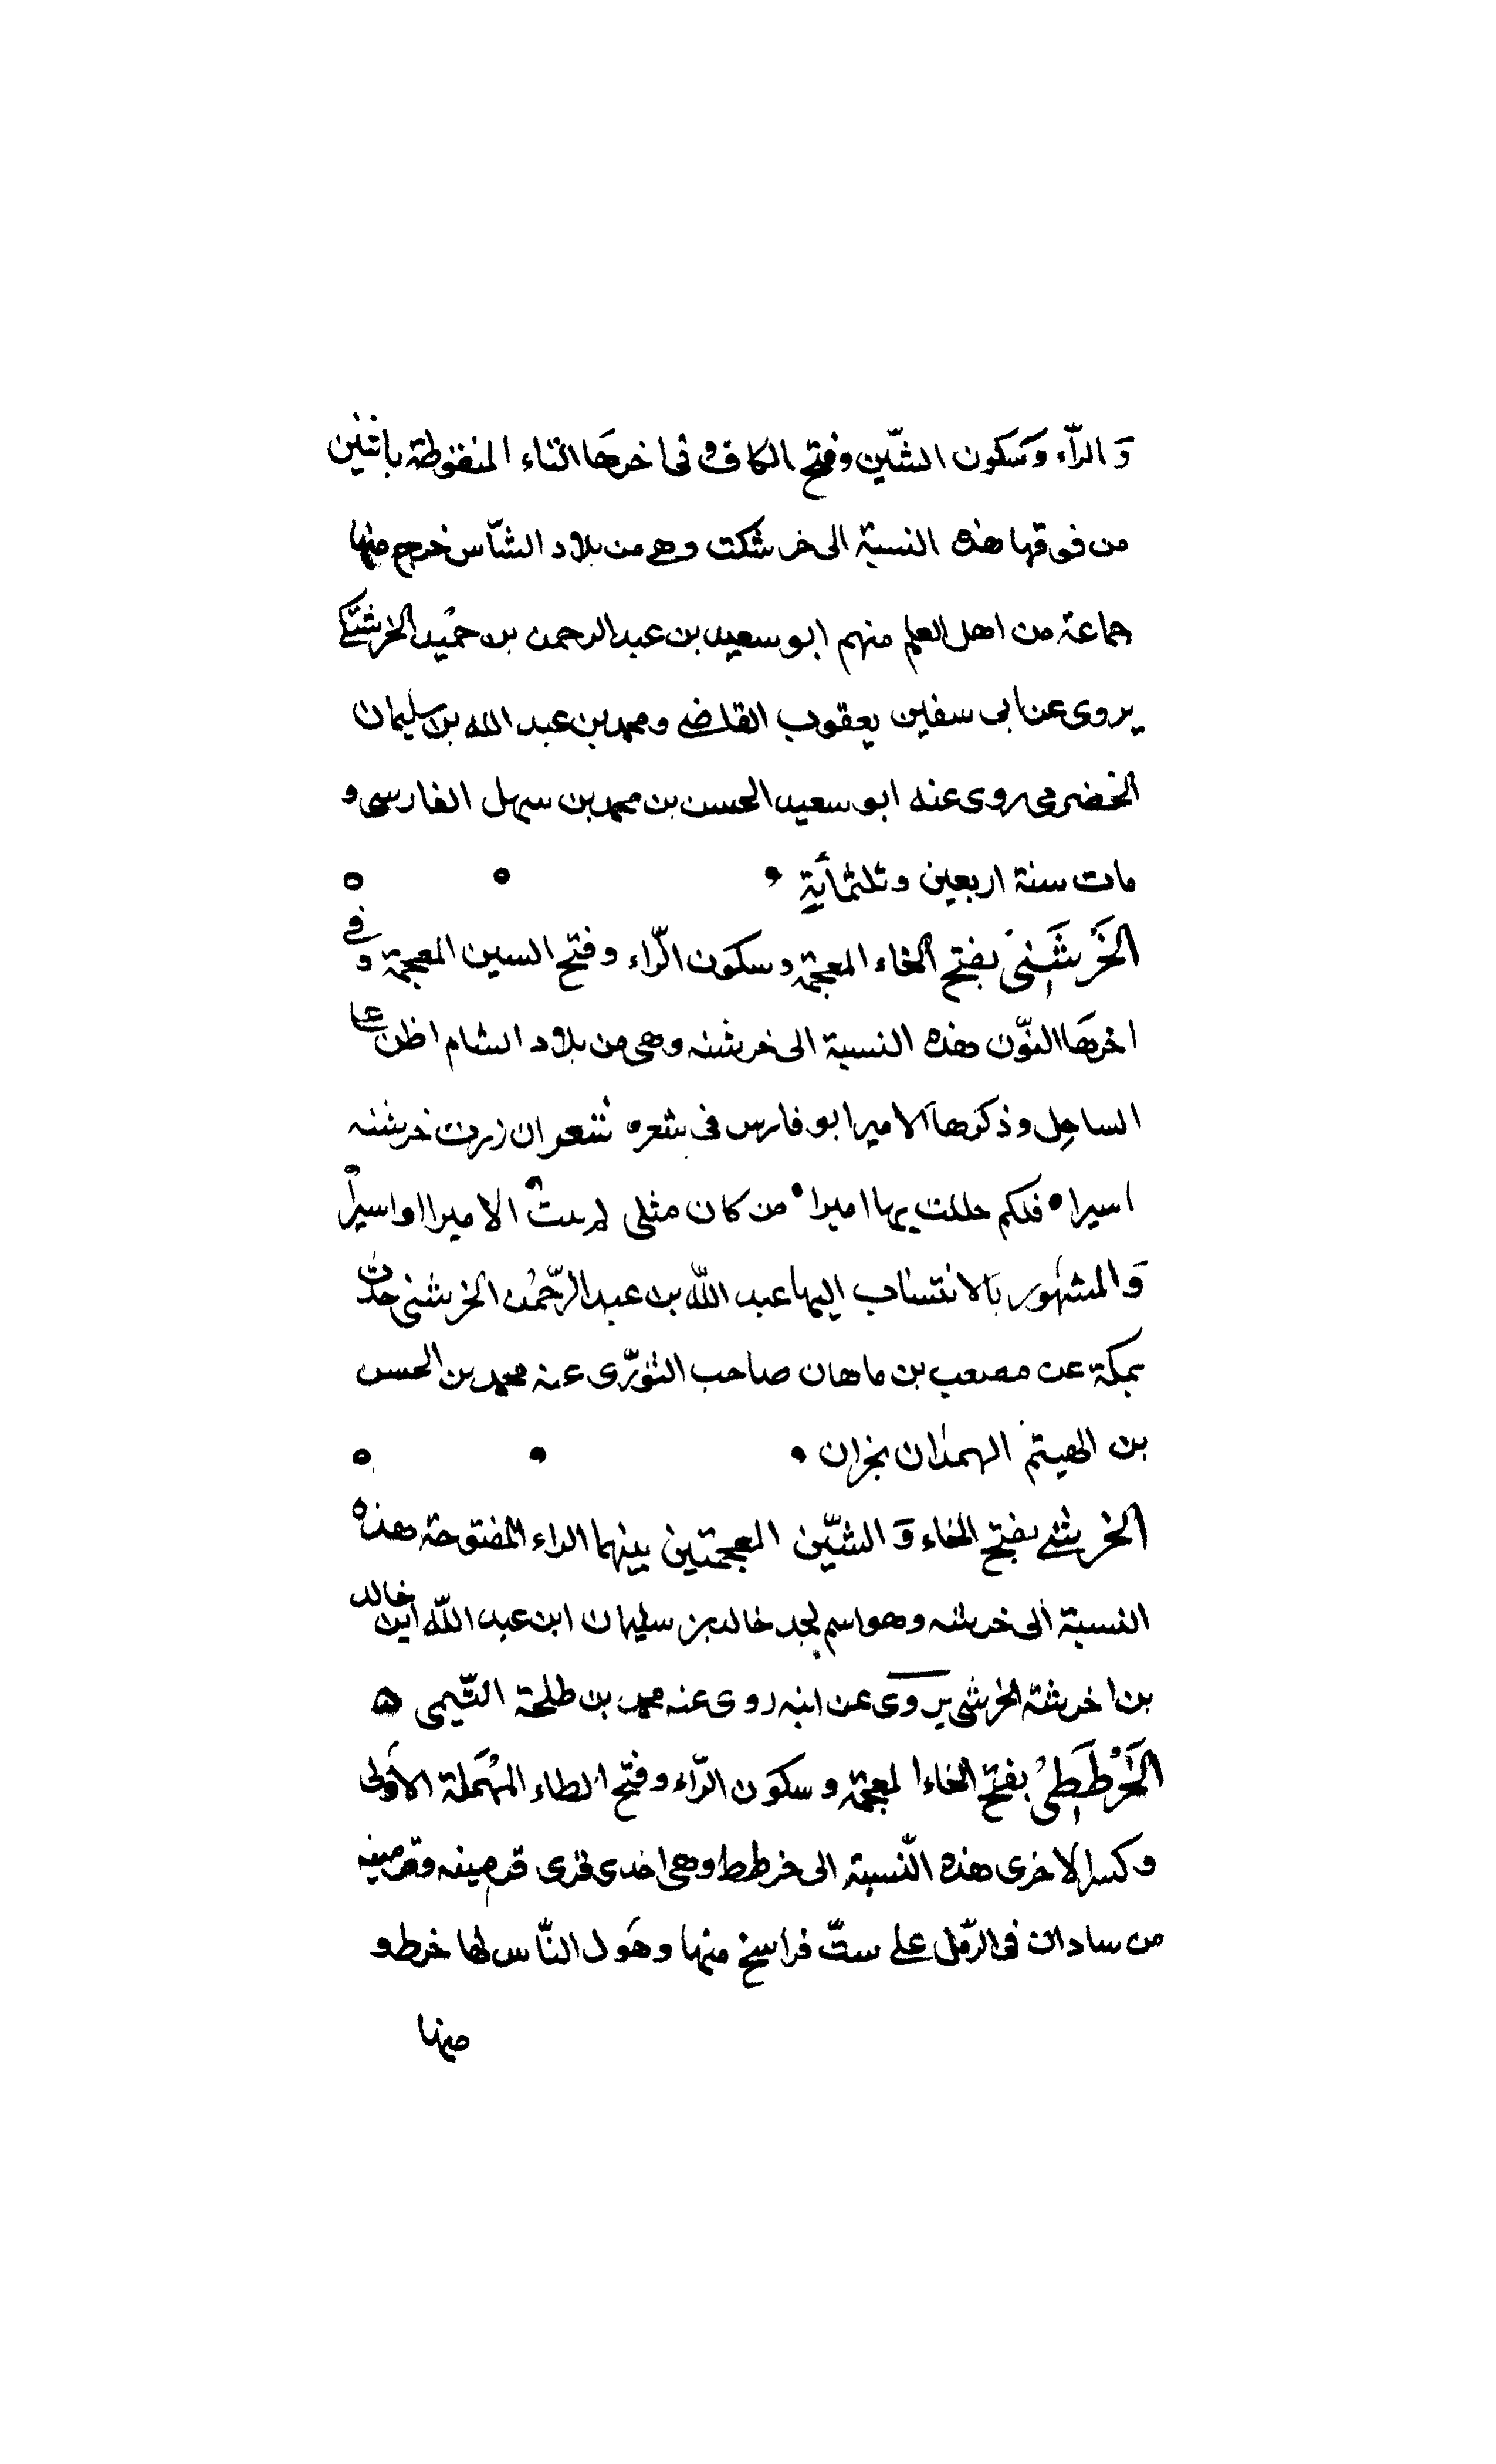 وَ الرّاء وَسَكون الشّين وفتح الكاف و فى اخرهَا التاء المنقوطة باثنين
من فوقها هذه النسبة الى خرشكت وهى من بلاد الشّاس خرج منها
جماعة من اهل العلم منهم ابو سعيد بن عبد الرحمن بن حميد الخرشكتى
يروى عن ابى سفين يعقوب القاضى ومحمد بن عبد الله بن سليمان
الخضرمى روى عنه ابو سعيد الحسن بن محمد بن سهل الفارسى و
مات سنة اربعين وثلثمأية
الخَرْشَنِىّ بفتح الخاء المعجمة وسكون الرّاء وفتح السين المعجمة وفى
اخرهَا النّون هذه النسبة الى خرشنه وهى من بلاد الشام اظن على
الساحِل وذكرها الامير ابو فارس فى شعره شعر ان زرت خرشنه
اسيرا فلكم حللت بها اميرا من كان مثلى لم يبت الا اميرا او اسيرًا
وَالمشهور بالانتساب اليها عبد اللّه بن عبد الرّحمن الخرشنى حدث
بمكة عن مصعب بن ماهان صاحب الثورّى عنه محمد بن الحسن
بن الهيثم الهمذان بخران
الخرشى بفتح الخاء وَ الشّين المعجمتين بينهما الراء المفتوحة هذه
النسبة الى خرشه وهو اسم لجد خالد بن سليمان ابن عبد اللّه ابن خالد
بن اخرشة الخرشى يروى عن ابيه روى عنه محمد بن طلحة التّيمى
الخَرْطَطِىُ بفتح الخاء المعجمة و سكون الرّاء وفتح الطاء المهملة الاولى
وكسر الاخرى هذه النّسبة الى خرطط وهى احدى قرى قرمينه وقرمينه
من سادان فى الرّمل على ستّ فراسخ منها وهَول النّاس لها خرطه و
منها